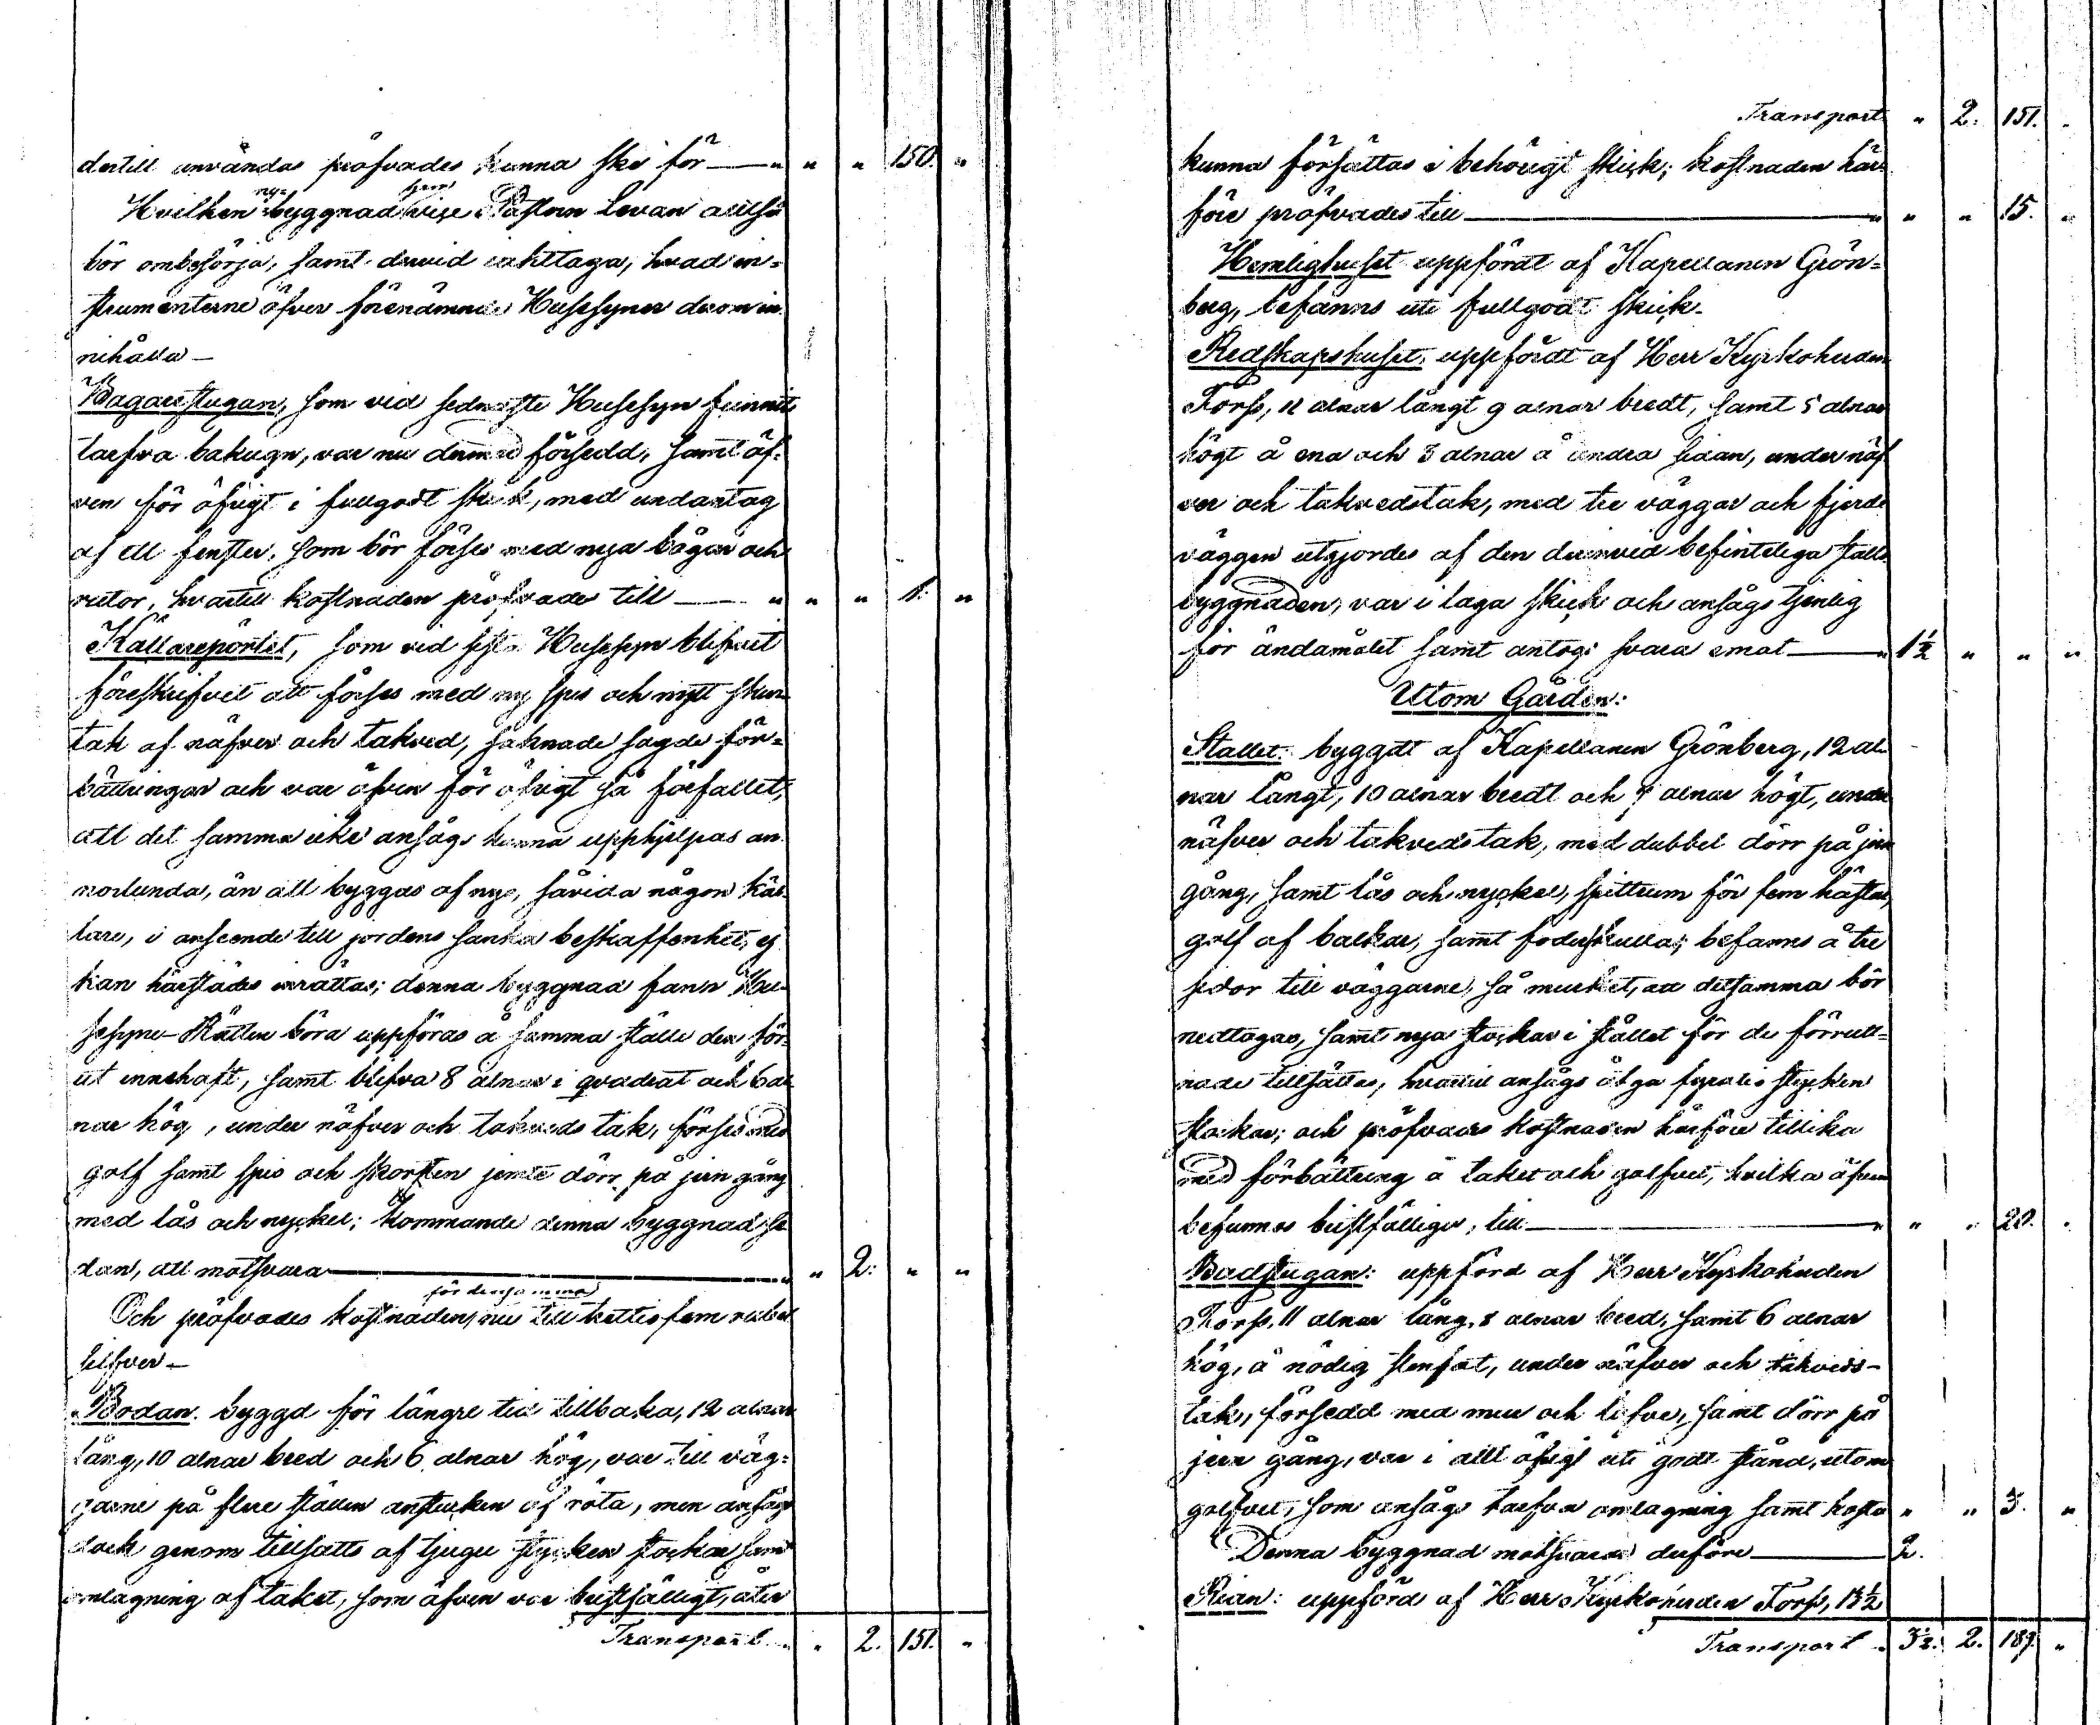 dertill användas pröfvades kunna ske för — " " " 150. "
Hvilken ny= byggnad Herr vice Pastorn Levan alltså
bör ombesörja, samt dervid iakttaga, hvad in=
strumenterne öfver förenämnde Husesyner derom in
nehålla —
Bagarestugan, som vid sednaste Husesyn funnits
tarfva bakugn, var nu dermed försedd, samt äf=
ven för öfrigt i fullgodt skick, med undantag
af ett fenster, som bör förses med nya bågar och
rutor, hvartill kostnaden pröfvades till — " " " 1. "
Källareportet, som vid sista Husesyn blifvit
föreskrifvet att förses med ny spis och nytt
tak af näfver och takved, saknade sagde för=
bättringar och var äfven för öfrigt så förfallet,
att det samma icke ansågs kunna upphjelpas an
norlunda, än att byggas af nyo, såvida någon käl
lare, i anseende till jordens sanka beskaffenhet, ej
kan härstädes inrättas; denna byggnad fann Hu
sesyne-Rätten böra uppföras å samma ställe den för
ut innehaft, samt blifva 8 alnar i qvadrat och 6 al
nar hög, under näfver och takveds tak, förses med
golf samt spis och skorsten jemte dörr på jern gång
med lås och nyckel; kommande denna byggnad se
dan, att motsvara — " " 2: " "
Och pröfvades kostnaden för densamma nu till trettiofem rubel
silfver —
Bodan. byggd för längre tid tillbaka, 12 alnar
lång, 10 alnar bred och 6 alnar hög, var till väg=
garne på flere ställen anstucken af röta, men ansågs
dock genom tillsatts af tjugu stycken stockar samt
omlagning af taket, som äfven var bristfälligt, åter
Transport " " 2. 151. "
Transport " 2. 151. "
kunna försättas i behörigt skick; kostnaden här=
före pröfvades till — " " " 15. "
Hemlighuset uppfördt af Kapellanen Grön=
berg, befanns uti fullgodt skick.
Redskapshuset. uppfördt af Herr Kyrkoherden
Forss, 11 alnar långt 9 alnar bredt, samt 5 alnar
högt å ena och 3 alnar å andra sidan, under näf
ver och takvedstak, med tre väggar och fjerde
väggen utgjordes af den dermvid befinteliga stalls
byggnaden, var i laga skick och ansågs tjenlig
för ändamålet samt antogs svara emot — " 1½ " " "
Utom Gården:
Stallet. byggdt af Kapellanen Grönberg, 12 al
nar långt, 10 alnar bredt och 7 alnar högt, under
näfver och takvedstak, med dubbel dörr på jern
gång, samt lås och nyckel, spiltrum för fem hästar,
golf af balkar, samt foderskulla; befanns å tre
sidor till väggarne, så murket, att detsamma bör
nedtagas, samt nya stockar i stället för de förrutt=
nade tillsättas, hvartill ansågs åtgå fyratio stycken
stockar; och pröfvades kostnaden härföre tillika
med förbättring å taket och golfvet, hvilka äfven
befunnos bristfällige, till — " " " 20. "
Badstugan: uppförd af Herr Kyrkoherden
Forss, 11 alnar lång, 8 alnar bred, samt 6 alnar
hög, å nödig stenfot, under näfver och takveds-
tak, försedd med mur och lafve, samt dörr på
jern gång, var i allt öfrigt uti godt stånd, utom
golfvet, som ansågs tarfva omlagning samt kosta " " 3. "
Denna byggnad motsvarar derföre — 2.
Rian: uppförd af Herr Kyrkoherden Forss, 13½
Transport " 3½. 2. 189. "